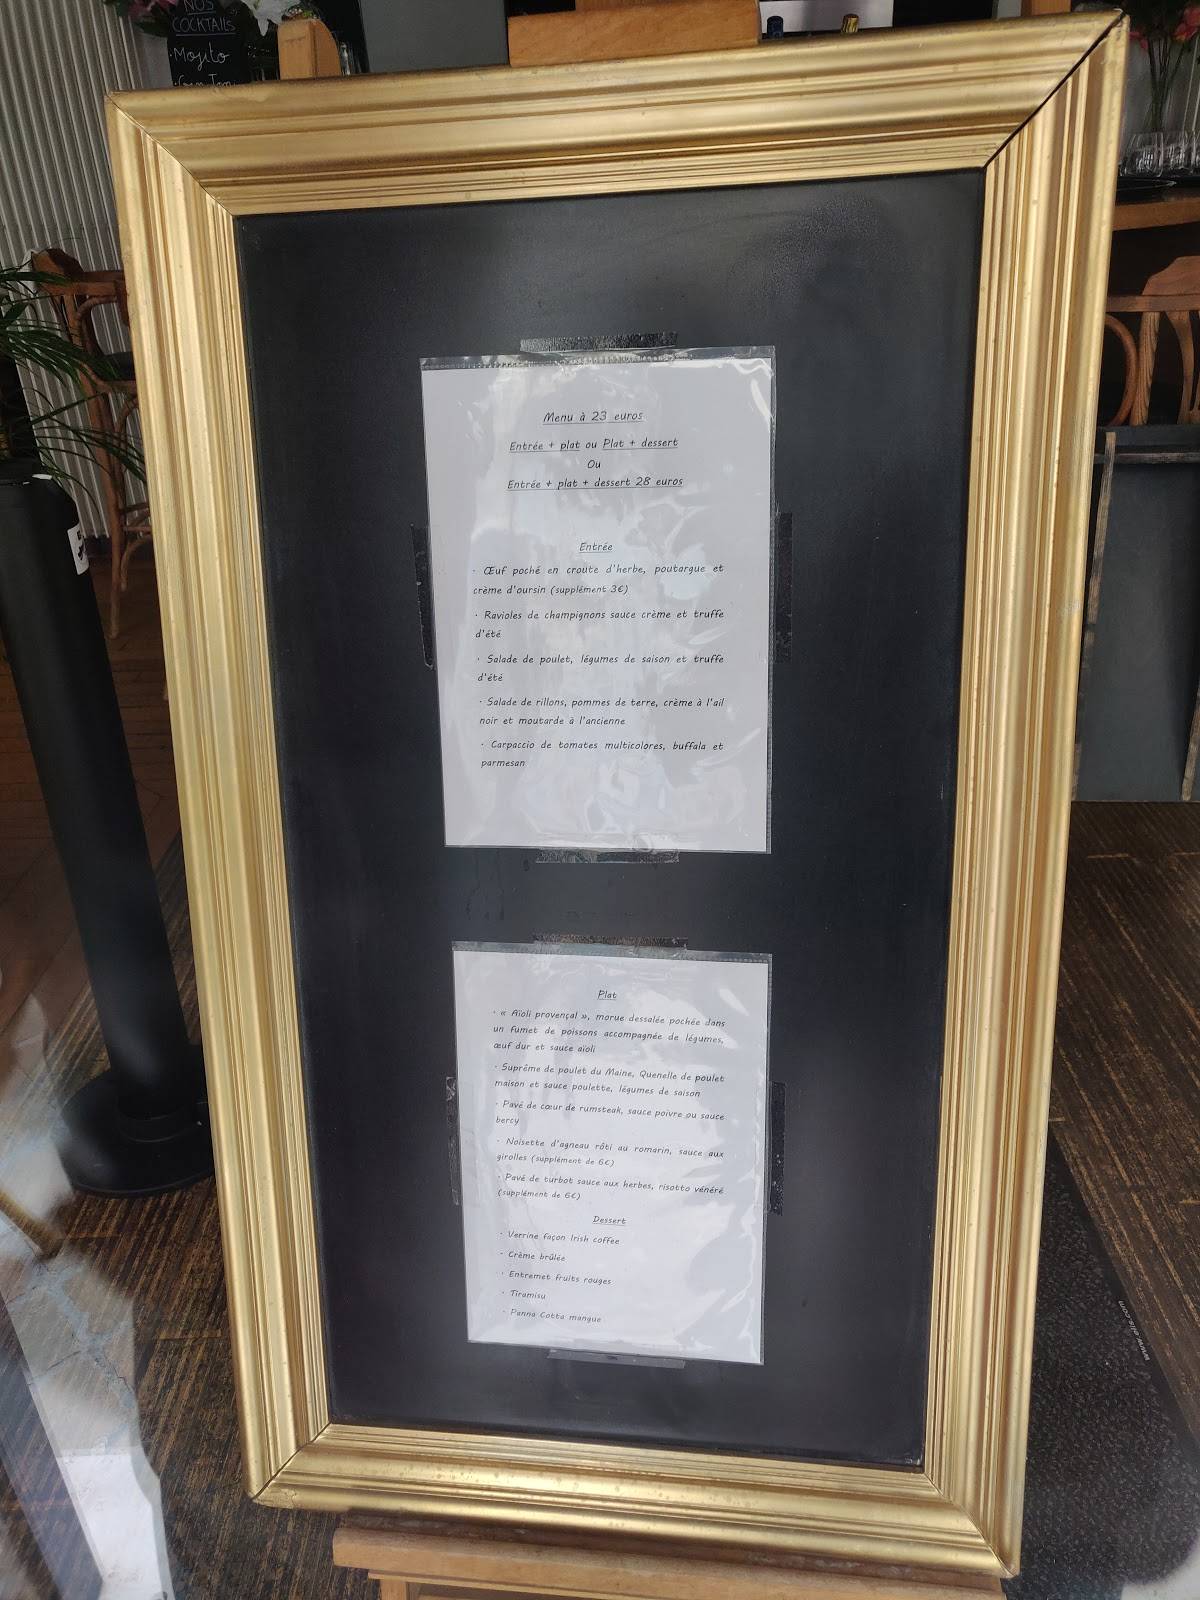 NOS
COCKTAILS
· Mojito
Menu à 23 euros
Entrée + plat ou Plat + dessert
Ou
Entrée + plat + dessert 28 euros
Entrée
· Œuf poché en croute d'herbe, poutargue et
crème d'oursin (supplément 3€)
· Ravioles de champignons sauce crème et truffe
d'été
· Salade de poulet, légumes de saison et truffe
d'été
· Salade de rillons, pommes de terre, crème à l'ail
noir et moutarde à l'ancienne
· Carpaccio de tomates multicolores, buffala et
parmesan
Plat
· « Aïoli provençal », morue dessalée pochée dans
un fumet de poissons accompagnée de légumes,
œuf dur et sauce aïoli
· Suprême de poulet du Maine, Quenelle de poulet
maison et sauce poulette, légumes de saison
· Pavé de cœur de rumsteak, sauce poivre ou sauce
bercy
· Noisette d'agneau rôti au romarin, sauce aux
girolles (supplément de 6€)
· Pavé de turbot sauce aux herbes, risotto vénéré
(supplément de 6€)
Dessert
· Verrine façon Irish coffee
· Crème brûlée
· Entremet fruits rouges
· Tiramisu
· Panna Cotta mangue
www.elis.com